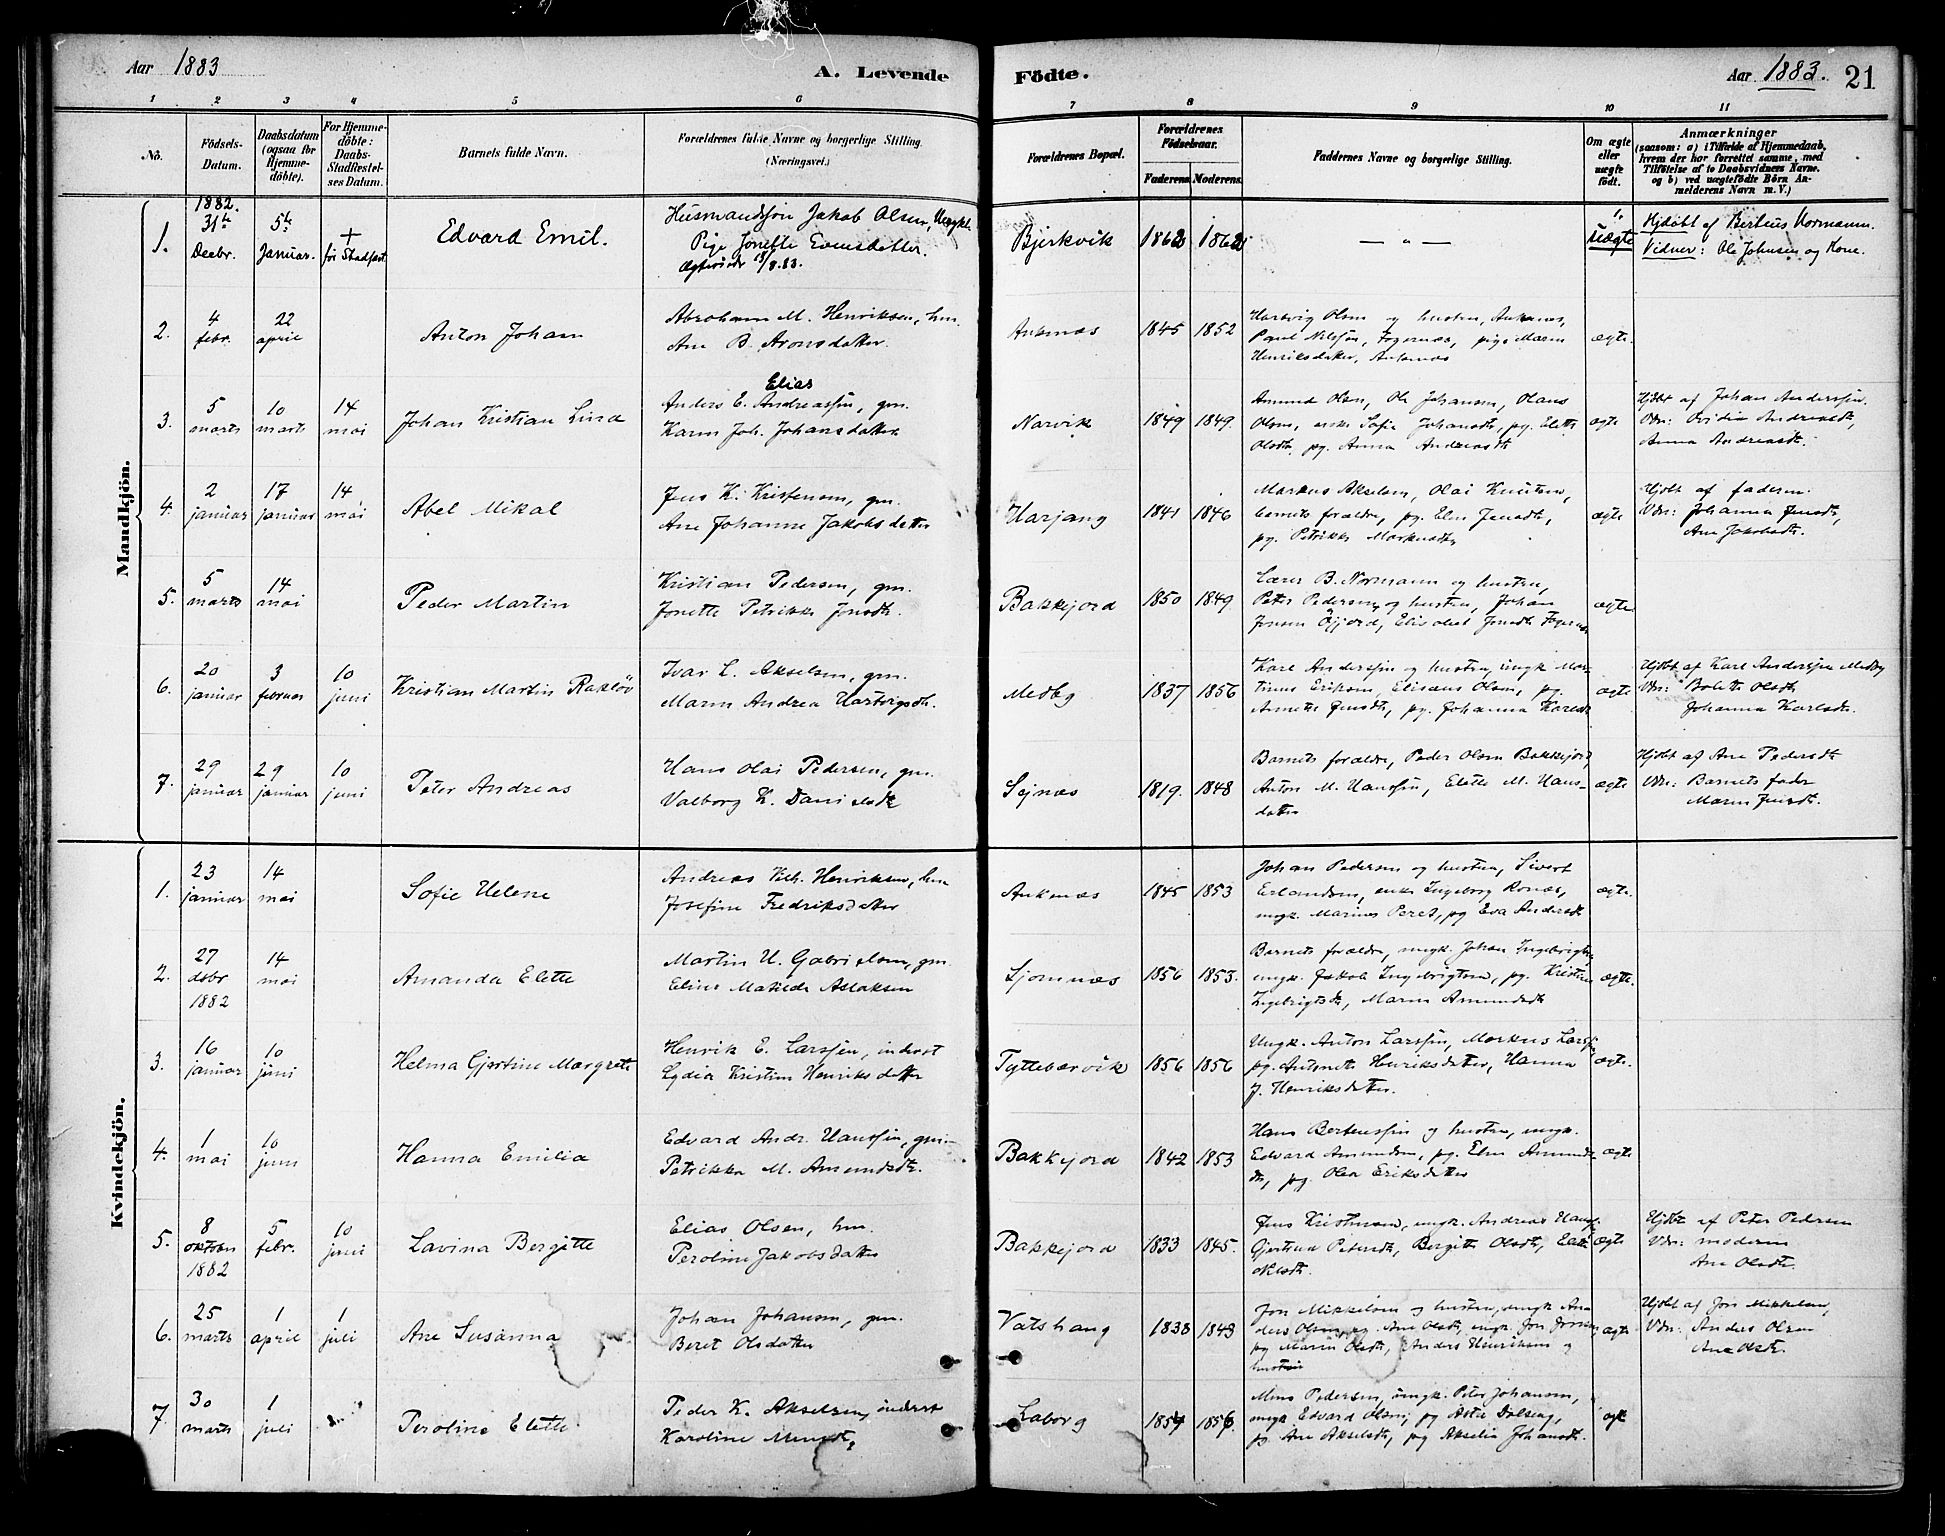 Aar 1883 A. Levende Födte. Aar 1883. 21
1 2 3 4 5 6 7 8 9 10 11
No. Födsels-Datum. Daabsdatum (ogsaa for Hjemmedöbte). For Hjemmedöbte: Daabs-Stadfæstelses Datum. Barnets fulde Navn. Forældrenes fulde Navne og borgerlige Stilling. (Næringsvei.) Forældrenes Bopæl. Forældrenes Födselsaar. Faderens Moderens. Faddernes Navne og borgerlige Stilling. Om ægte eller uægte födt. Anmærkninger (saasom: a) i Tilfælde af Hjemmedaab, hvem der har forrettet samme, med Tilföielse af to Daabsvidners Navne. og b) ved uægtefödte Börn Anmelderens Navn m. V.)
Mandkjön.
1. 1882. 31te Decbr. 5te Januar. + før Stadfæst Edvard Emil. Husmandssøn Jakob Olsen, Ungkl.
Pige Jonette Evensdatter. Bjerkvik 1862 1862 — " — 1. uægte Hjdøbt af Berteus Normann.
Vidner: Ole Johnsen og Kone.
2. 4 febr. 22 april Anton Johan Abraham M. Henriksen, hm.
Ane B. Aronsdatter Ankenæs 1845 1852 Hartvig Olsen og hustru, Ankenæs,
Paul Nilssøn, Fagernæs, pige Maren
Henriksdatter, Ankenæs ægte.
3. 5 marts 10 marts 14 mai Johan Kristian Lind Elias
Anders E. Andreassen, gm.
Karen Joh. Johansdatter Narvik 1849 1849. Amund Olsen, Ole Johansen, Olaus
Olsen, enke Sofie Johansdt, pg. Elette
Olsdt, pg. Anna Andreasdt ægte Hjdbt af Johan Anderssen
Vdn: Andreasdt,
Anna Andreasdt.
4. 2 januar 17 januar 14 mai Abel Mikal Jens K. Kristensen, gm.
Ane Johanne Jakobsdatter Harjang 1841 1846 Markus Akselsen, Olai Knutsen,
barnets forældre, pg. Elen Jensdt,
pg. Petrikke Markusdtr ægte Hjdbt af faderen
Vdn: Johanna Jensdt,
Ane Jakobsdt.
5. 5 marts 14 mai Peder Martin Kristian Pedersen, gm.
Jonette Petrikke Jensdt. Bakkejord 1850 1849. Lærer B. Normann og hustru,
Peter Pedersen og hustru, Johan
Jensen Øjjord, Elisabet Jensdt Fagernæs ægte
6. 20 januar 3 februar 10 juni Kristian Martin Rakløv Ivar L. Akselsen, gm.
Maren Andrea Harborgsdt. Medby 1837 1856 Karl Anderssen og hustru, ungk. Mar-
tinus Eriksen, Eliseus Olsen, pg.
Annette Jensdt, pg. Johanna Karlsdt ægte Hjdbt af Karl Anderssen Medby
Vdn: Bolette Olsdt
Johanna Karlsdt.
7. 29 januar 29 januar 10 juni Peter Andreas Hans Olai Pedersen, gm.
Valborg K. Danielsdt Sejnæs 1819. 1848 Barnets forældre, Peder Olsen Bakkejord,
Anton M. Hanssen, Elette M. Hans-
datter ægte Hjdbt af Ane Pedersdt
Vdn: Barnets fader
Maren Jensdt.
Kvindekjön.
1. 23 januar 14 mai Sofie Helene Andreas Vilh. Henriksen, hm
Josefine Fredriksdatter Ankenæs 1845 1853 Johan Pedersen og hustru, Sivert
Erlandsen, enke Ingeborg Ronæs,
ungk. Marinus Peres, pg Eva Andersdt ægte.
2. 27 dcbr 1882 14 mai Amanda Elette Martin U. Gabrielsen, gm.
Eline Matilde Aslaksen Sjomnæs 1856 1853. Barnets forældre, ungk. Johan Ingebrigtsen,
ungk. Jakob Ingebrigtsen, pg. Kristine
Ingebrigtsdt, Maren Amundsdt ægte.
3. 16 januar 10 juni Helma Gjertine Margrete Henrik E. Larssen, inderst
Lydia Kristine Henriksdatter Tyttebærvik 1856 1856 Ungk. Anton Larssen, Markus Larssen
pg. Antonette Henriksdatter, Hanna
J. Henriksdatter. ægte.
4. 1 mai 10 juni Hanna Emilia Edvard Andr. Hanssen, gm.
Petrikka M. Amundsdt. Bakkejord 1842 1853 Hans Berteussen og hustru, ungk.
Edvard Amundsen, pg. Elen Amunds-
dt, pg. Olea Eriksdatter ægte
5. 8 oktober 1882 5 febr. 10 juni Lavina Bergitte Elias Olsen, hm.
Peroline Jakobsdatter Bakkejord 1833 1845. Jens Kristensen, ungk. Andreas Hanss.
Gjertrud Petersdt, Bergitte Olsdt, Elette
Nilsdt. ægte Hjdbt af Peter Pedersen
Vdn: moderen
Ane Olsdt.
6. 25 marts 1 april 1 juli Ane Susanna Johan Johansen, gm.
Beret Olsdatter Vatshaug 1838 1843 Jon Mikkelsen og hustru, ungk. An-
ders Olsen og Ane Olsdt, ungk. Jon Jonsen,
pg Maren Olsdt, Anders Henriksen og
hustru ægte Hjdbt af Jon Mikkelsen,
Vdn: Anders Olsen
Ane Olsdt.
7. 30 marts 1 juli Peroline Elette Peder K. Akselsen, inderst
Karoline Monsdt. Laborg 1854 1856 Mons Pedersen, ungk. Peter Johansen,
ungk Edvard Olsen, pg
pg. Ane Akselsdt, pg Akselia Johansdt. ægt